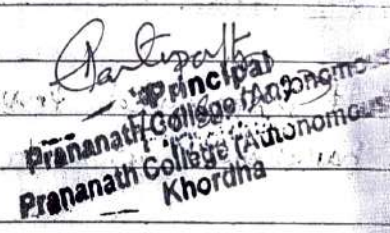 Principal
Prananath College (Autonomo
Prananath College (Autonomo
Khordha